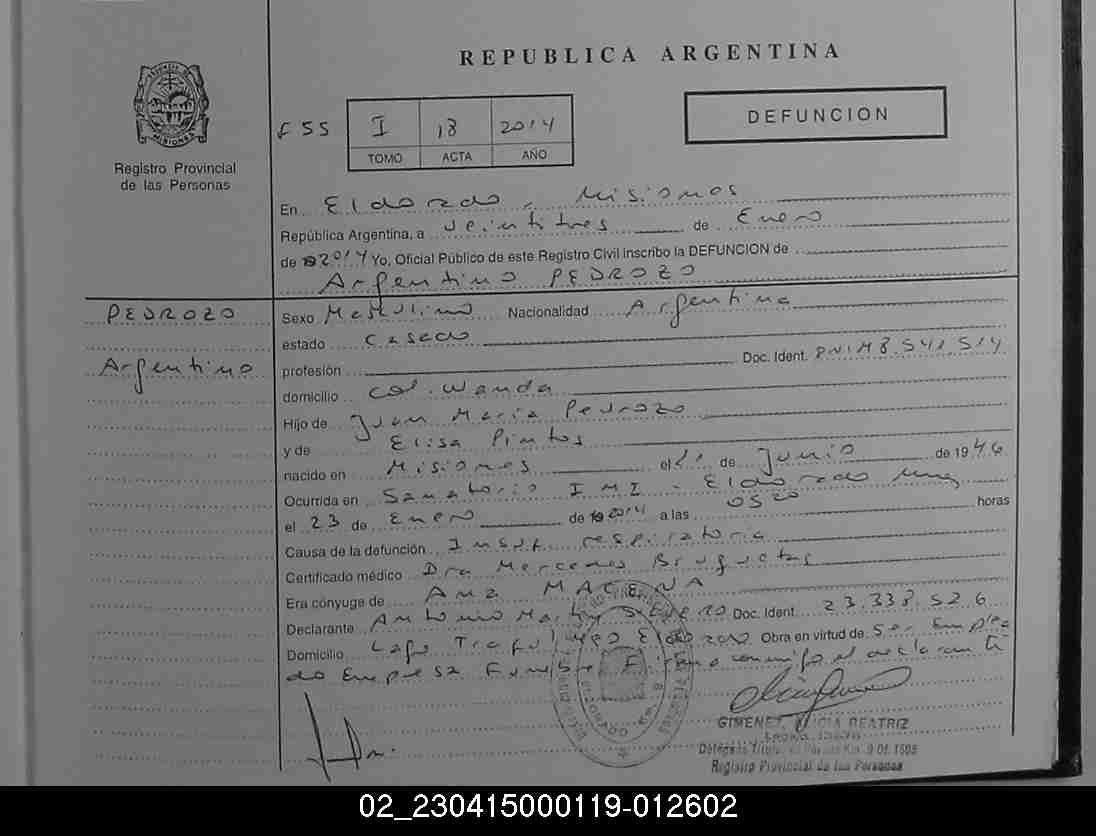 REPUBLICA ARGENTINA
MISIONES
Registro Provincial
de las Personas
I 18 2014
TOMO ACTA AÑO
DEFUNCION
En Eldorado, Misiones
República Argentina, a veintitres de Enero
de 2014 Yo, Oficial Público de este Registro Civil inscribo la DEFUNCION de
Argentino PEDROZO
PEDROZO
Argentino
Sexo Masculino Nacionalidad Argentina
estado Casado
profesión Doc. Ident. DNI M 8.541.514
domicilio Col. Wanda
Hijo de Juan Maria Pedrozo
y de Elisa Pintos
nacido en Misiones el de Junio de 1946
Ocurrida en Sanatorio IMI - Eldorado Mnes
el 23 de Enero de 2014 a las 0520 horas
Causa de la defunción Insuf. respiratoria
Certificado médico Dra Mercedes
Era cónyuge de Ana MACENA
Declarante Antonio Doc. Ident. 23.338.526
Domicilio Lago Eldorado Obra en virtud de Ser Emplea
do Empresa Funebre Firma conmigo el declarante
GIMENEZ, ALICIA BEATRIZ
Registro Provincial de las Personas
02_230415000119-012602